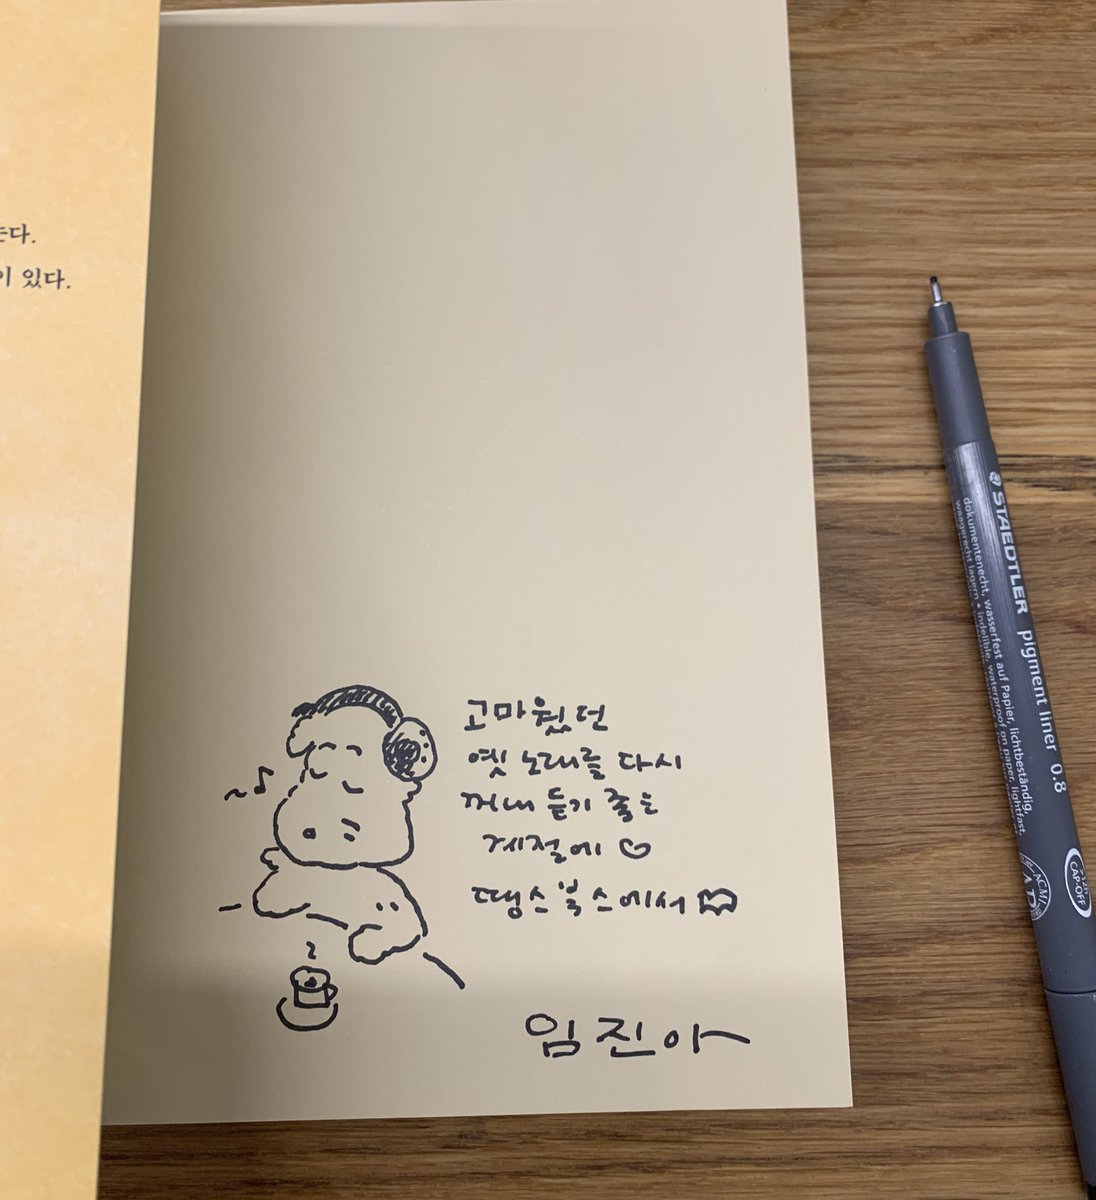 든다.
이 있다.
고마웠던
옛 노래를 다시
꺼내 듣기 좋은
계절에 ♡
땡스북스에서
임진아
STAEDTLER pigment liner 0.8
dokumentenecht, wasserfest auf Papier, lichtbeständig,
waagerecht lagern • indelible, waterproof on paper, lightfast,
CAP-OFF
ACMI